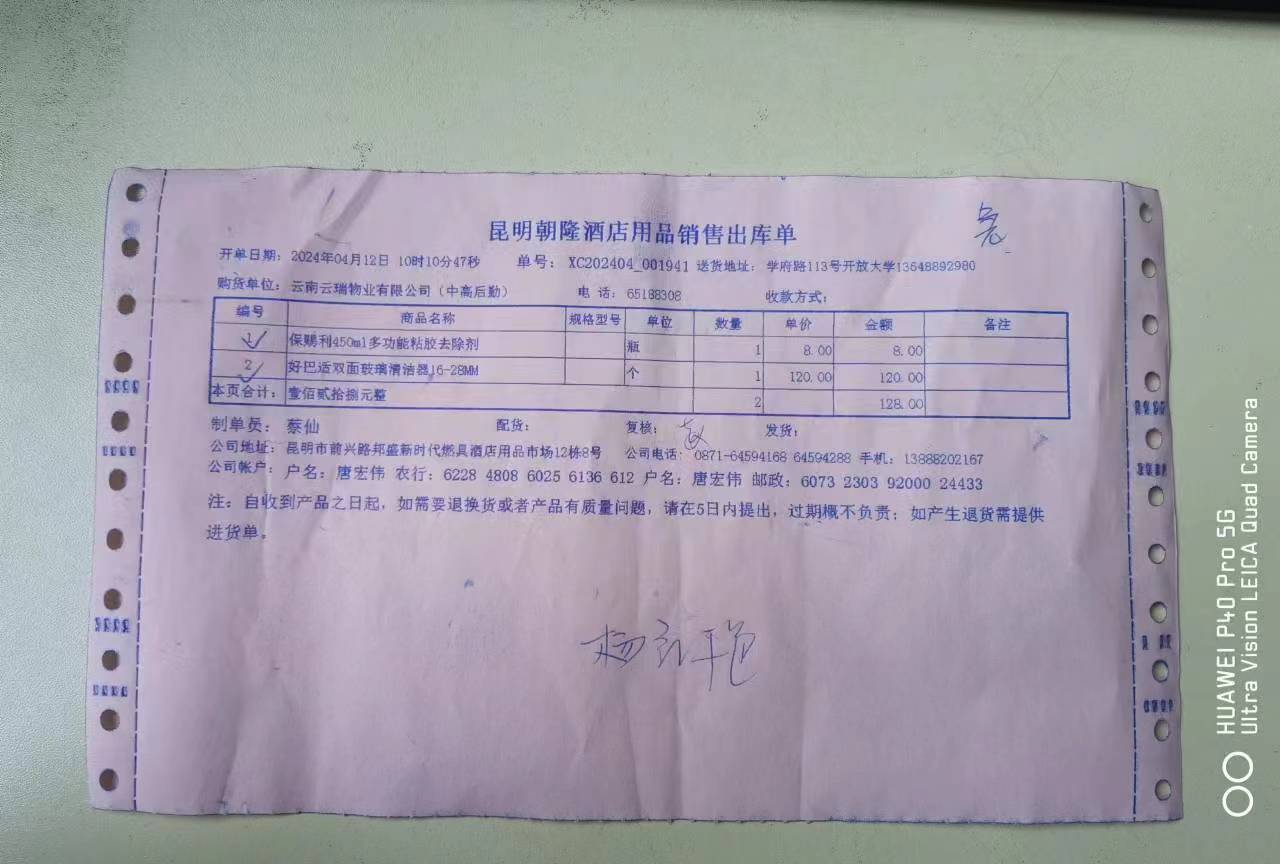 昆明朝隆酒店用品销售出库单
开单日期: 2024年04月12日 10时10分47秒 单号: XC202404_001941 送货地址: 学府路113号开放大学13648892980
购货单位: 云南云瑞物业有限公司（中高后勤） 电 话: 65188308 收款方式:
编号 商品名称 规格型号 单位 数量 单价 金额 备注
1 保赐利450ml多功能粘胶去除剂 瓶 1 8.00 8.00
2 好巴适双面玻璃清洁器16-28MM 个 1 120.00 120.00
本页合计: 壹佰贰拾捌元整 2 128.00
制单员: 蔡仙 配货: 复核: 发货:
公司地址: 昆明市前兴路邦盛新时代燃具酒店用品市场12栋8号 公司电话: 0871-64594168 64594288 手机: 13888202167
公司帐户: 户名: 唐宏伟 农行: 6228 4808 6025 6136 612 户名: 唐宏伟 邮政: 6073 2303 92000 24433
注: 自收到产品之日起, 如需要退换货或者产品有质量问题, 请在5日内提出, 过期概不负责; 如产生退货需提供
进货单。
HUAWEI P40 Pro 5G
Ultra Vision LEICA Quad Camera